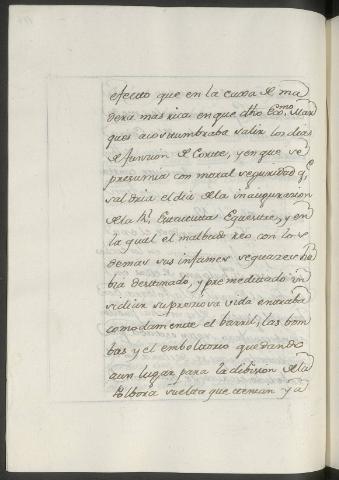 efecto que en la caxa de ma
dera mas rica en que dho Exc.mo Mar
ques acostumbraba salir los dias
de funcion de Corte, y en que se
presumia con moral seguridad q.e
saldria el dia de la inauguracion
de la R.l Estatua Equestre, y en
la qual el malbado reo con los
demas sus infames sequazes ha
bia destinado, y premeditado in
sidiar su preziosa vida entraba
comodamente el barril, las bom
bas y el emboltorio quedando
aun lugar para la dibision de la
Polbora suelta que tenian ya